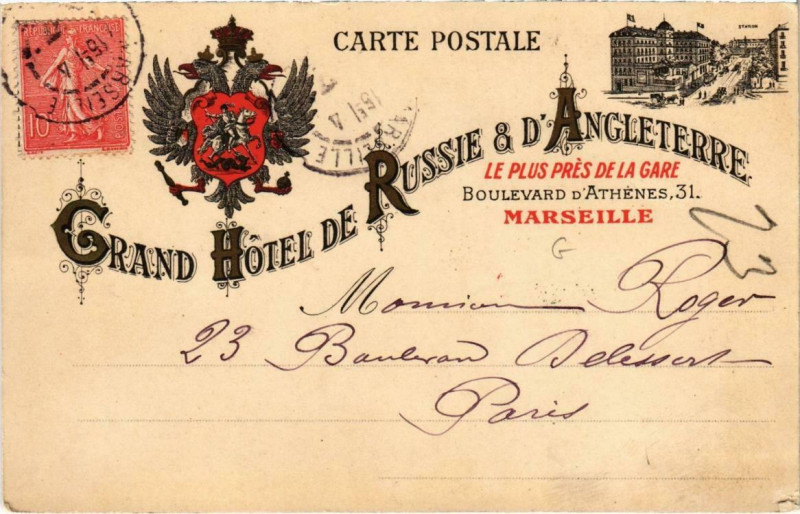 REPUBLIQUE FRANÇAISE
10
MARSEILLE
CARTE POSTALE
STATION
GRAND HÔTEL DE RUSSIE & D'ANGLETERRE
LE PLUS PRÈS DE LA GARE
BOULEVARD D'ATHÈNES, 31.
MARSEILLE
G
23
Monsieur Roger
23 Boulevard Delessert
Paris